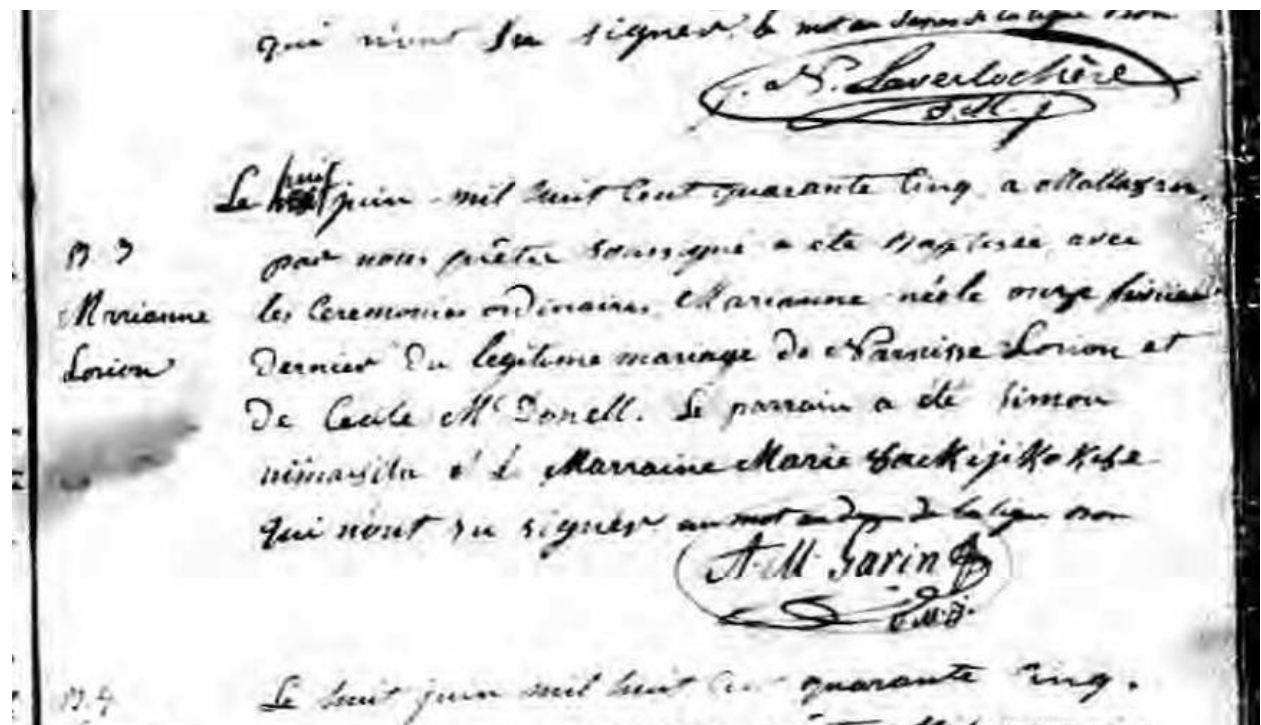 qui n'ont su signer. le mot au dessus de la ligne bon
J. N. Laverlochère
O.M.J
Le huit juin mil huit cent quarante cinq a Mattawan,
B 3
par nous prêtre soussigné a été baptisée avec
Marianne
les Ceremonies ordinaires Marianne née le onze fevrier
Lorion
dernier du legitime mariage de Narcisse Lorion et
de Cecile McDonell. Le parrain a été Simon
et la Marraine Marie
qui n'ont su signer un mot au dessus de la ligne bon
A. M. Garin
O.M.J.
B. 4
Le huit juin mil huit cent quarante cinq.